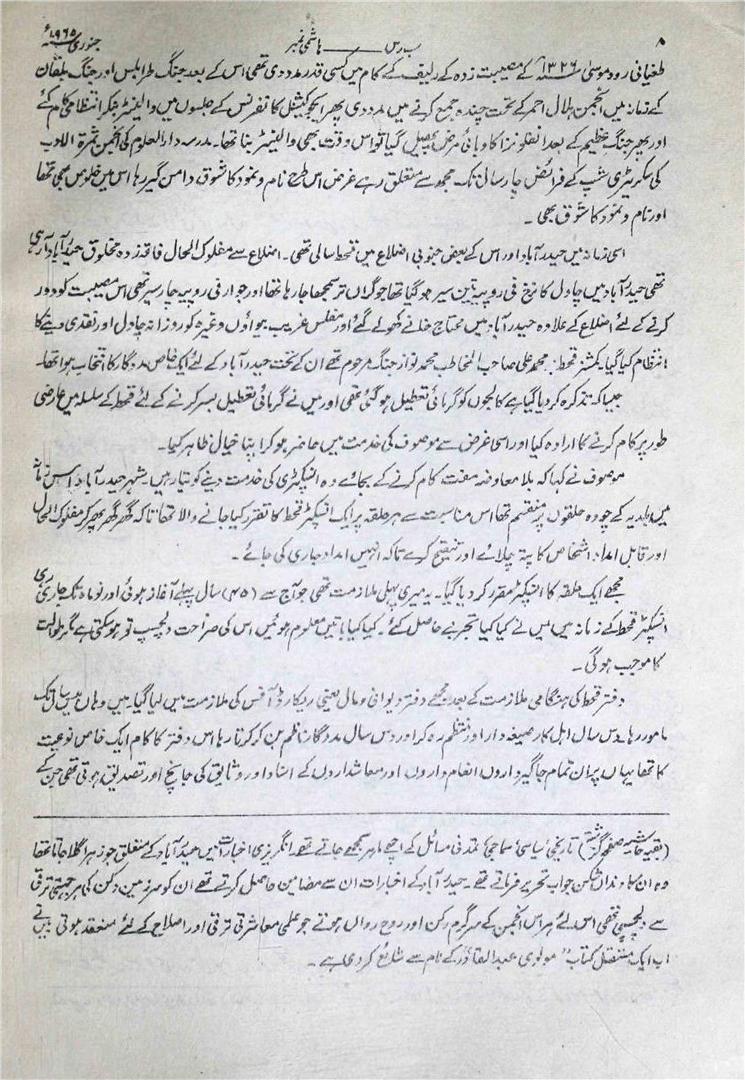 ۸ سب رس ہاشمی نمبر جنوری ۱۹۶۵ء
طغیانی رود موسیٰ ۱۳۲۶ کے مصیبت زدہ کے ریلیف کے کام میں کسی قدر مدد دی تھی اس کے بعد جنگ طرابلس اور جنگ بلقان
کے زمانہ میں انجمن ہلال احمر کے تحت چندہ جمع کرنے میں مدد دی پھر ایجوکیشنل کانفرنس کے جلسوں میں والینٹر بنکر انتظامی کام کئے
اور پھر جنگ عظیم کے بعد انفلونزا کا وبائی مرض پھیل گیا تو اس وقت بھی والینٹر بنا تھا۔ مدرسہ دار العلوم کی انجمن ثمرۃ الادب
کی سکریٹری شپ کے فرائض چار سال تک مجھ سے متعلق رہے غرض اس طرح نام و نمود کا شوق دامن گیر رہا اس میں خلوص بھی تھا
اور نام و نمود کا شوق بھی ۔
اسی زمانہ میں حیدرآباد اور اس کے بعض جنوبی اضلاع میں قحط سالی تھی۔ اضلاع سے مفلوک الحال فاقہ زدہ مخلوق حیدرآباد آ رہی
تھی حیدرآباد میں چاول کا نرخ فی روپیہ تین سیر ہو گیا تھا جو گراں تر سمجھا جا رہا تھا اور جوار فی روپیہ چار سیر تھی اس مصیبت کو دور
کرنے کے لئے اضلاع کے علاوہ حیدرآباد میں محتاج خانے کھولے گئے اور مفلس غریب بیواؤں وغیرہ کو روزانہ چاول اور نقدی دینے کا
انتظام کیا گیا کمشنر قحط محمد علی صاحب المخاطب محمد نواز جنگ مرحوم تھے ان کے تحت حیدرآباد کے لئے ایک خاص مددگار کا انتخاب ہوا تھا۔
جیسا کہ تذکرہ کر دیا گیا ہے کالجوں کو گرمائی تعطیل ہو گئی تھی اور میں نے گرمائی تعطیل بسر کرنے کے لئے قحط کے سلسلہ میں عارضی
طور پر کام کرنے کا ارادہ کیا اور اسی غرض سے موصوف کی خدمت میں حاضر ہو کر اپنا خیال ظاہر کیا۔
موصوف نے کہا کہ بلا معاوضہ مفت کام کرنے کے بجائے وہ انسپکٹری کی خدمت دینے کو تیار ہیں۔ شہر حیدرآباد اس زمانہ
میں بلدیہ کے چودہ حلقوں پر منقسم تھا اس مناسبت سے ہر حلقہ پر ایک انسپکٹر قحط کا تقرر کیا جانے والا تھا تاکہ گھر گھر پھر کر مفلوک الحال
اور قابل امداد اشخاص کا پتہ چلائے اور تنقیح کرے تاکہ انہیں امداد جاری کی جائے ۔
مجھے ایک حلقہ کا انسپکٹر مقرر کر دیا گیا۔ یہ میری پہلی ملازمت تھی جو آج سے (۴۵) سال پہلے آغاز ہوئی اور نو ماہ تک جاری رہی
انسپکٹر قحط کے زمانہ میں میں نے کیا کیا تجربے حاصل کئے۔ کیا کیا باتیں معلوم ہوئیں اس کی صراحت دلچسپ تو ہو سکتی ہے مگر طوالت
کا موجب ہوگی ۔
دفتر قحط کی ہنگامی ملازمت کے بعد مجھے دفتر دیوانی و مال یعنی ریکارڈ آفس کی ملازمت میں لیا گیا۔ میں وہاں بیس سال تک
مامور رہا۔ دس سال اہل کار صیغہ دار اور منتظم رہ کر اور دس سال مددگار ناظم بن کر کرتا رہا اس دفتر کا کام ایک خاص نوعیت
کا تھا یہاں پر ان تمام جاگیرداروں انعام داروں اور معاشداروں کے اسناد اور وثائق کی جانچ اور تصدیق ہوتی تھی جن کے
(بقیہ حاشیہ صفحہ گزشتہ) تاریخی، سیاسی، سماجی، تمدنی مسائل کے اچھے ماہر سمجھے جاتے تھے۔ انگریزی اخبارات میں حیدرآباد کے متعلق جو زہر اگلا جاتا تھا
وہ ان کا دنداں شکن جواب تحریر فرماتے تھے۔ حیدرآباد کے اخبارات ان سے مضامین حاصل کرتے تھے ان کو سرزمین دکن کی ہر جہتی ترقی
سے دلچسپی تھی اس لئے ہر اس انجمن کے سرگرم رکن اور روح رواں ہوتے جو علمی معاشرتی ترقی اور اصلاح کے لئے منعقد ہوتی
اب ایک مستقل کتاب "مولوی عبدالقادر" کے نام سے شائع کر دی ہے ۔